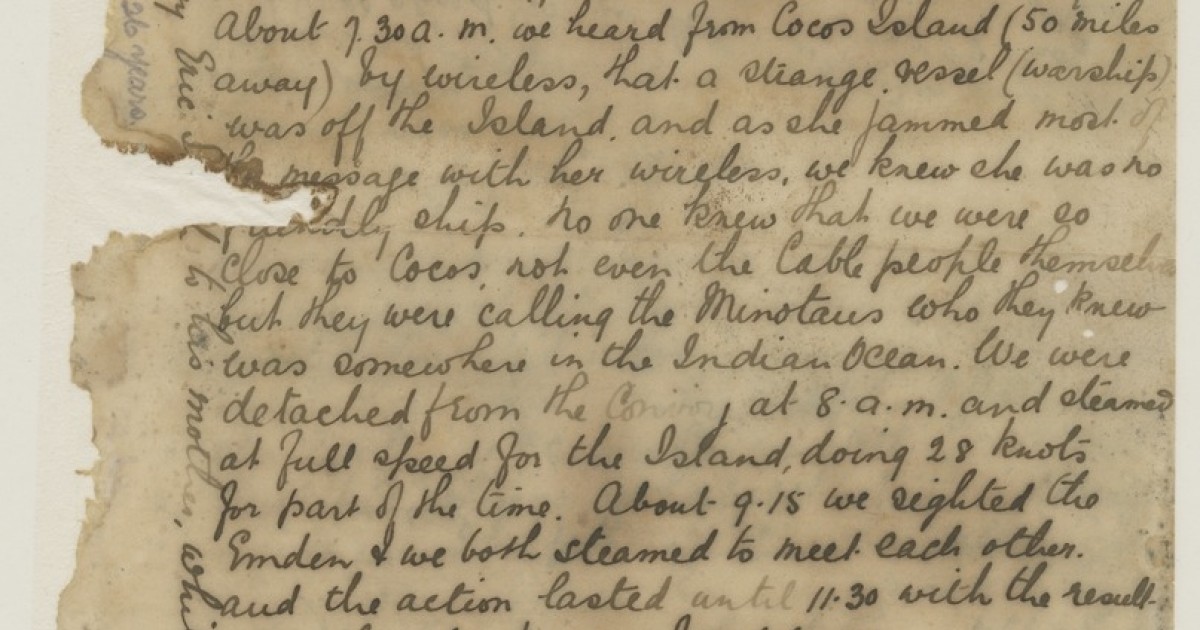 About 7.30 a.m. we heard from Cocos Island (50 miles
away) by wireless, that a strange vessel (warship)
was off the Island, and as she jammed most of
the message with her wireless, we knew she was no
friendly ship. No one knew that we were so
close to Cocos, not even the Cable people themselves
but they were calling the Minotaus who they knew
was somewhere in the Indian Ocean. We were
detached from the Convoy at 8.a.m. and steamed
at full speed for the Island, doing 28 knots
for part of the time. About 9.15 we sighted the
Emden & we both steamed to meet each other.
and the action lasted until 11.30 with the result
26 years.
Eric
to his mother, whi